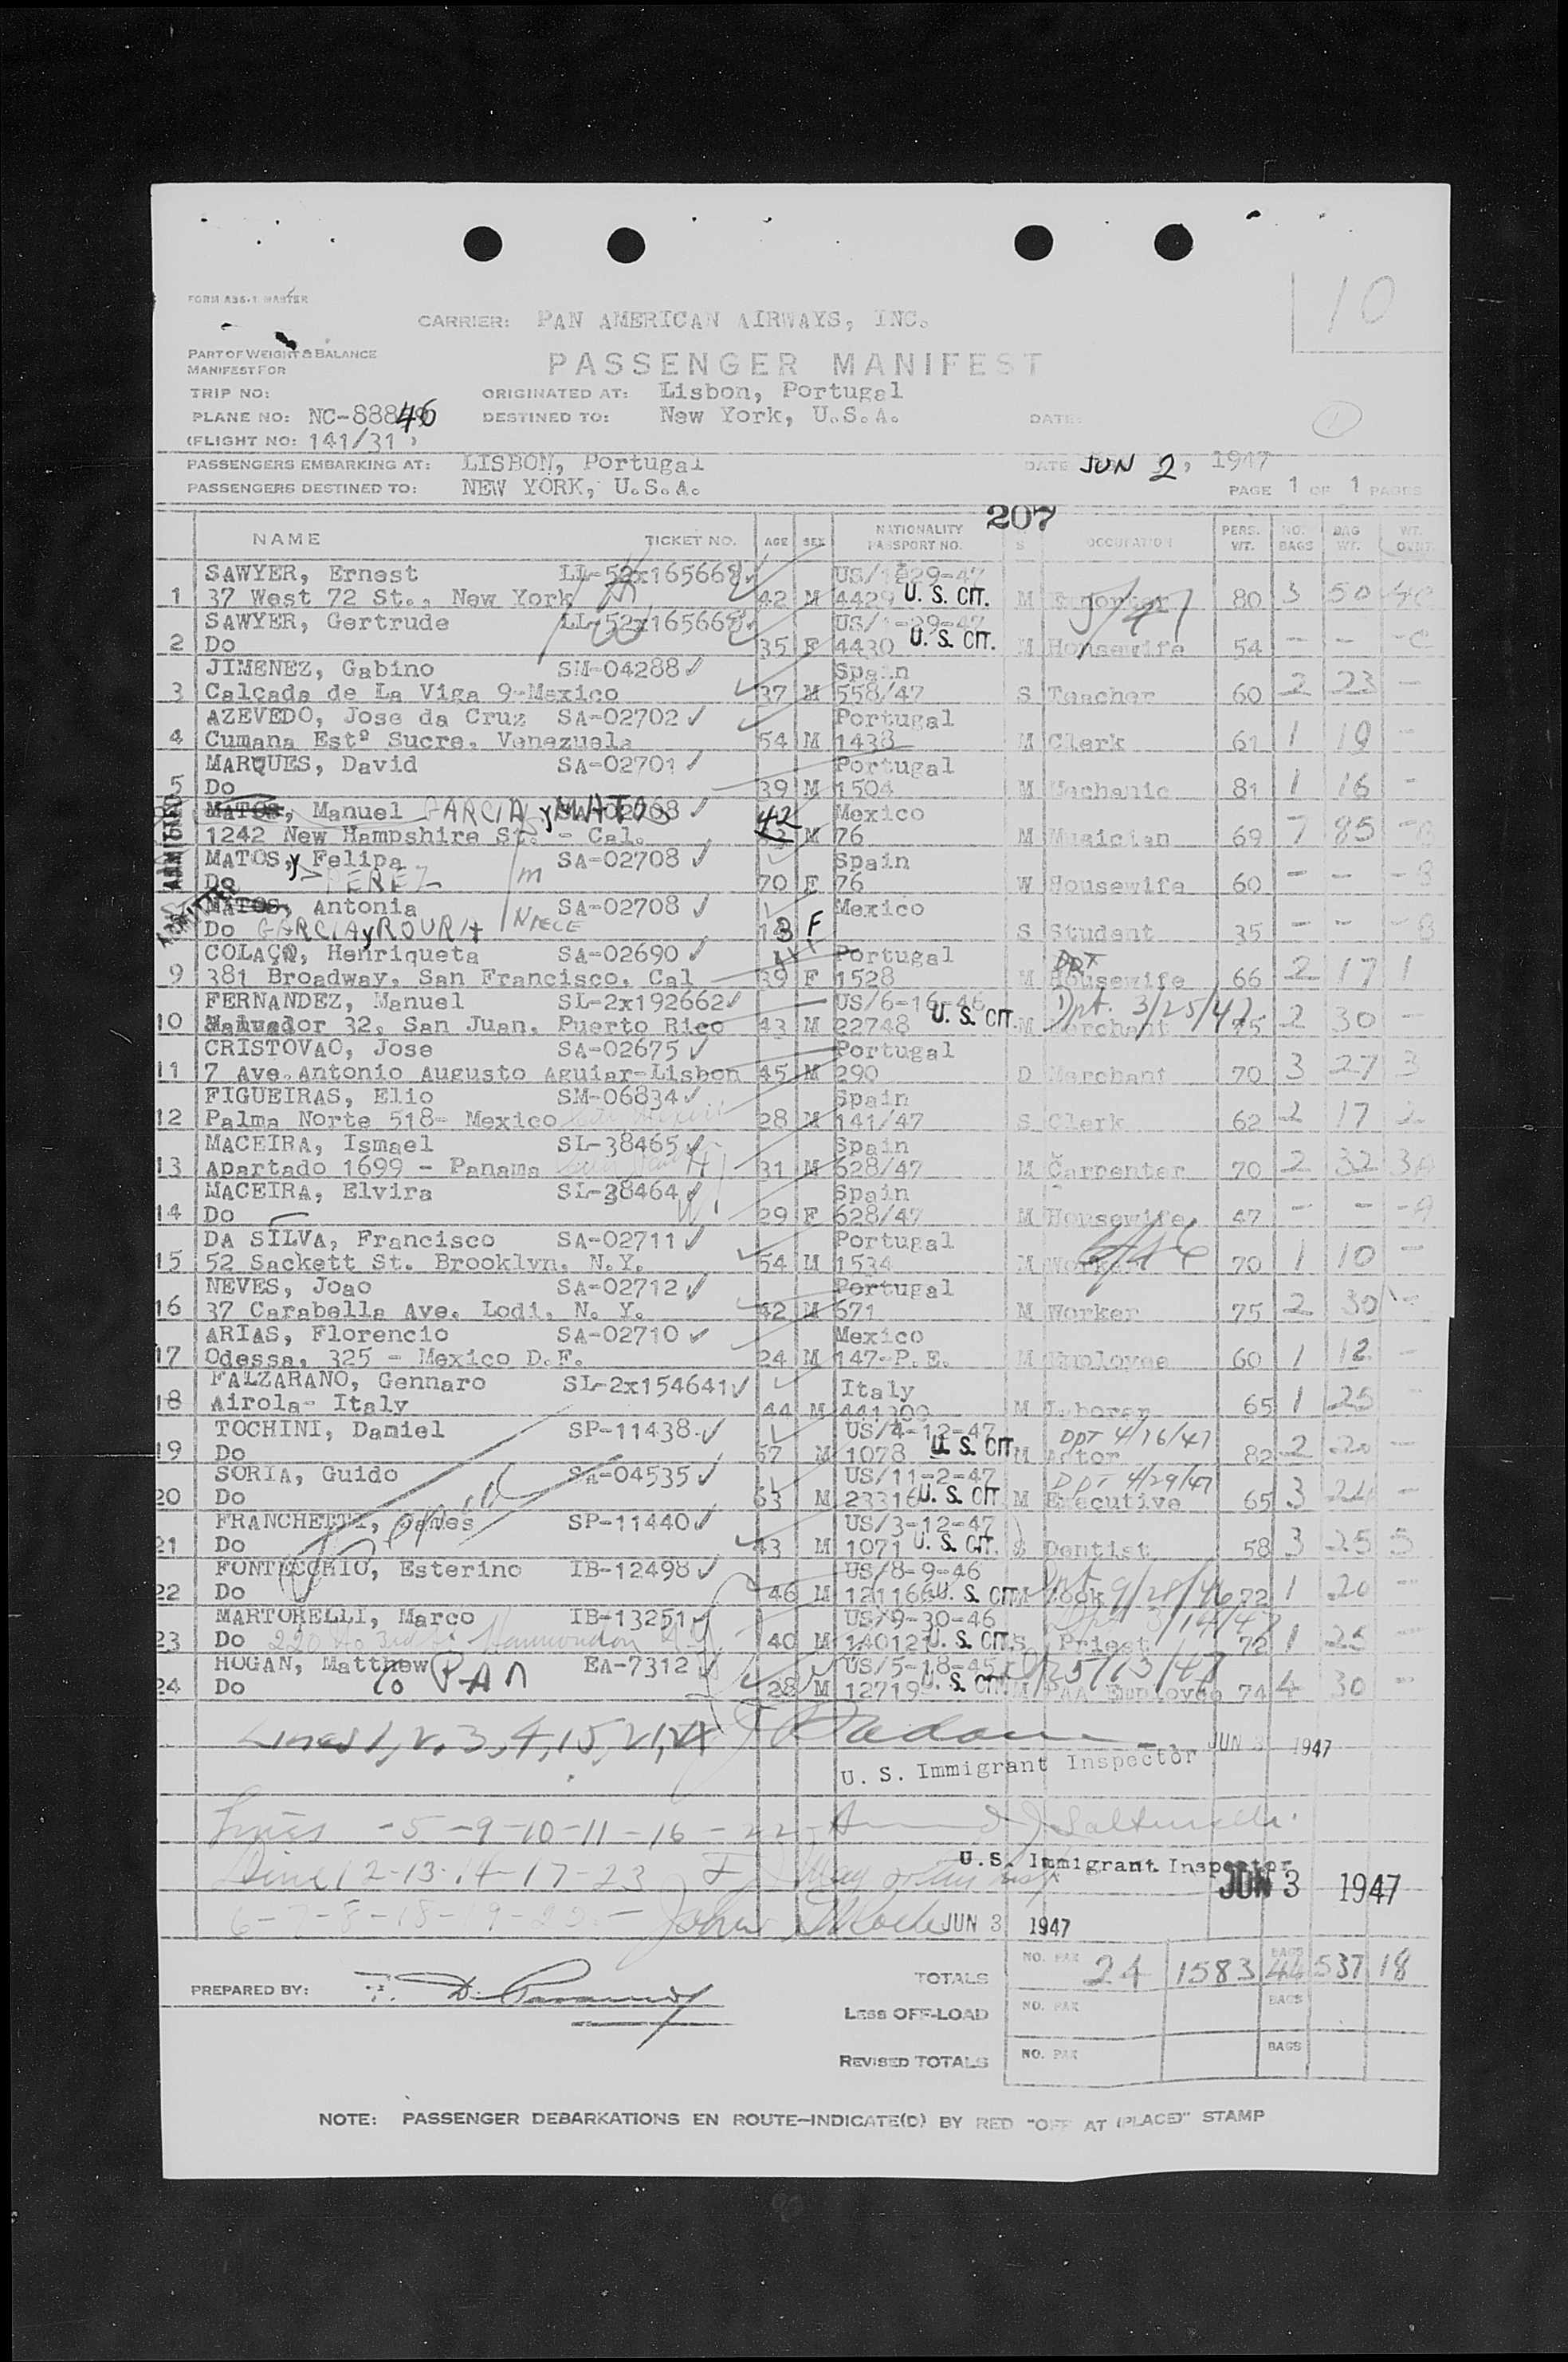 FORM A36-1 MASTER
10
CARRIER: PAN AMERICAN AIRWAYS, INC.
PART OF WEIGHT & BALANCE
MANIFEST FOR
PASSENGER MANIFEST
TRIP NO: ORIGINATED AT: Lisbon, Portugal
PLANE NO: NC-88846 DESTINED TO: New York, U.S.A. DATE: 1
(FLIGHT NO: 141/31 )
PASSENGERS EMBARKING AT: LISBON, Portugal DATE JUN 2, 1947
PASSENGERS DESTINED TO: NEW YORK, U.S.A. PAGE 1 OF 1 PAGES
207
NAME TICKET NO. AGE SEX NATIONALITY PASSPORT NO. S OCCUPATION PERS. WT. NO. BAGS BAG WT. WT. OVER
SAWYER, Ernest LL-52x165668 US/1-29-47
1 37 West 72 St., New York 42 M 4429 U. S. CIT. M 5/47 80 3 50
SAWYER, Gertrude LL-52x165668 US/1-29-47
2 Do 35 F 4430 U. S. CIT. M Housewife 54 - -
JIMENEZ, Gabino SM-04288 Spain
3 Calçada de La Viga 9-Mexico 37 M 558/47 S Teacher 60 2 23 -
AZEVEDO, Jose da Cruz SA-02702 Portugal
4 Cumana Estº Sucre, Venezuela 54 M 1438 M Clerk 61 1 19 -
MARQUES, David SA-02701 Portugal
5 Do 39 M 1504 M Mechanic 81 1 16 -
MATOS, Manuel GARCIA y MATOS Mexico
1242 New Hampshire St. - Cal. 42 M 76 M Musician 69 7 85
ADMITTED
MATOS, y Felipa SA-02708 Spain
Do PEREZ m 70 F 76 W Housewife 60 - - -B
MATOS, Antonia SA-02708 Mexico
Do GARCIA y ROURA NIECE 13 F S Student 35 - - -B
COLAÇO, Henriqueta SA-02690 Portugal DPT
9 381 Broadway, San Francisco, Cal 39 F 1528 M Housewife 66 2 17 1
FERNANDEZ, Manuel SL-2x192662 US/6-16-46 Dpt. 3/25/47
10 Salvador 32, San Juan, Puerto Rico 43 M 22748 U. S. CIT. M Merchant 75 2 30 -
CRISTOVAO, Jose SA-02675 Portugal
11 7 Ave. Antonio Augusto Aguiar-Lisbon 45 M 290 D Merchant 70 3 27 3
FIGUEIRAS, Elio SM-06834 Spain
12 Palma Norte 518- Mexico 28 M 141/47 S Clerk 62 2 17 2
MACEIRA, Ismael SL-38465 Spain
13 Apartado 1699 - Panama H 31 M 628/47 M Carpenter 70 2 32 3A
MACEIRA, Elvira SL-38464 Spain
14 Do W 29 F 628/47 M Housewife 47 - - -A
DA SILVA, Francisco SA-02711 Portugal
15 52 Sackett St. Brooklyn, N.Y. 54 M 1534 M Worker 70 1 10 -
NEVES, Joao SA-02712 Portugal
16 37 Carabella Ave. Lodi, N. Y. 42 M 671 M Worker 75 2 30 -
ARIAS, Florencio SA-02710 Mexico
17 Odessa, 325 - Mexico D.F. 24 M 147-P.E. M Employee 60 1 12 -
FALZARANO, Gennaro SL-2x154641 Italy
18 Airola- Italy 44 M 441300 M Laborer 65 1 25 -
TOCHINI, Daniel SP-11438 US/4-12-47 DPT 4/16/47
19 Do 57 M 1078 U. S. CIT. M Actor 82 2 20 -
SORIA, Guido SA-04535 US/11-2-47 DPT 4/29/47
20 Do 53 M 23316 U. S. CIT. M Executive 65 3 24 -
FRANCHETTI, James SP-11440 US/3-12-47
21 Do 43 M 1071 U. S. CIT. S Dentist 58 3 25 5
FONTECCHIO, Esterino IB-12498 US/8-9-46 Dpt
22 Do 46 M 121166 U. S. CIT. M Cook 9/28/46 72 1 20 -
MARTORELLI, Marco IB-13251 US/9-30-46 Dpt 3/14/47
23 Do 40 M 140121 U. S. CIT. S Priest 72 1 25 -
HOGAN, Matthew EA-7312 US/5-18-45 5/13/47
24 Do co PAA 28 M 12719 U. S. CIT. M PAA Employee 74 4 30 -
Lines 1, 2, 3, 4, 15, 21, 24 JUN 3 1947
U. S. Immigrant Inspector
Lines -5-9-10-11-16-22-
U.S. Immigrant Inspector
Line 12-13-14-17-23 JUN 3 1947
6-7-8-18-19-20- JUN 3 1947
TOTALS NO. PAX 24 1583 BAGS 44 537 18
PREPARED BY:
LESS OFF-LOAD NO. PAX BAGS
REVISED TOTALS NO. PAX BAGS
NOTE: PASSENGER DEBARKATIONS EN ROUTE-INDICATE(D) BY RED "OFF AT (PLACE)" STAMP